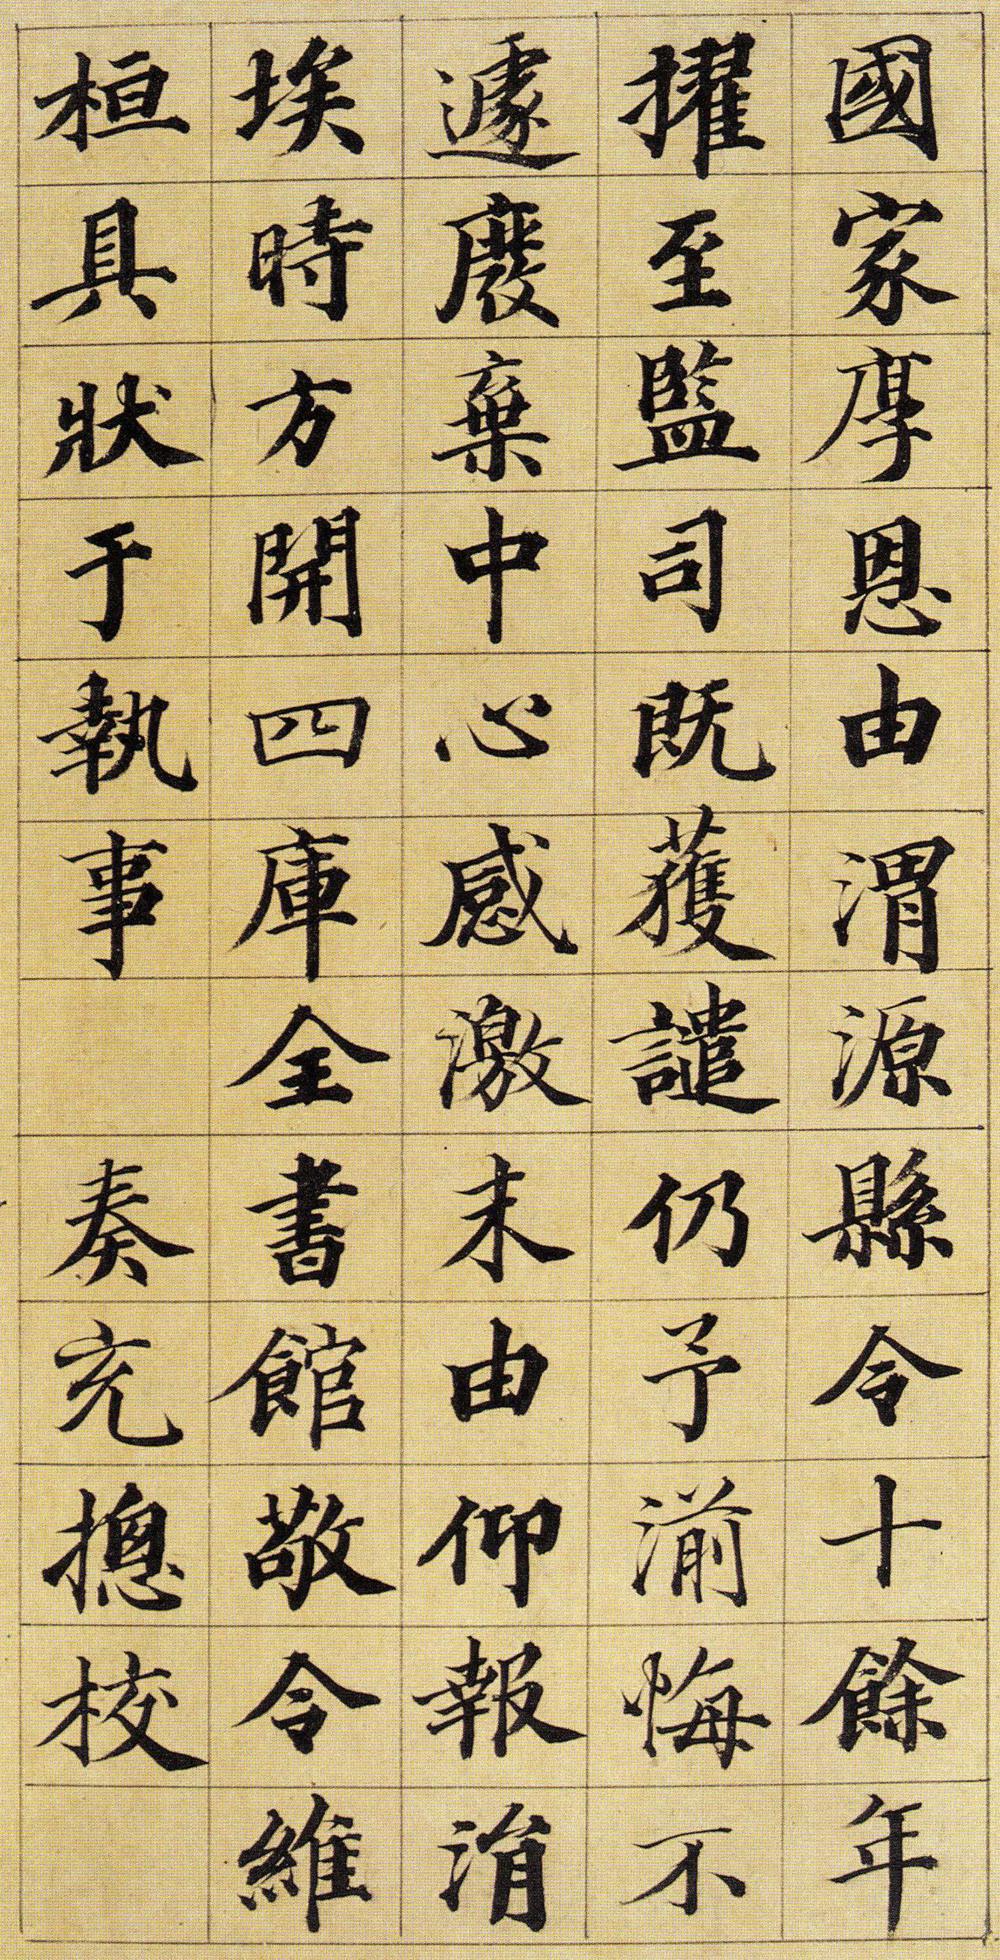 國家厚恩由渭源縣令十餘年
擢至監司既獲譴仍予湔悔不
遽廢棄中心感激未由仰報涓
埃時方開四庫全書館敬令維
桓具狀于執事 奏充摠校